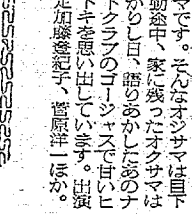 マです。そんなオジサマは目下
動途中、家に残ったオクサマは
かりし日、語りあかしたあのナ
トクラブのゴージャスで甘いヒ
トキを思い出しています。出演
加藤登紀子、菅原洋一ほか。